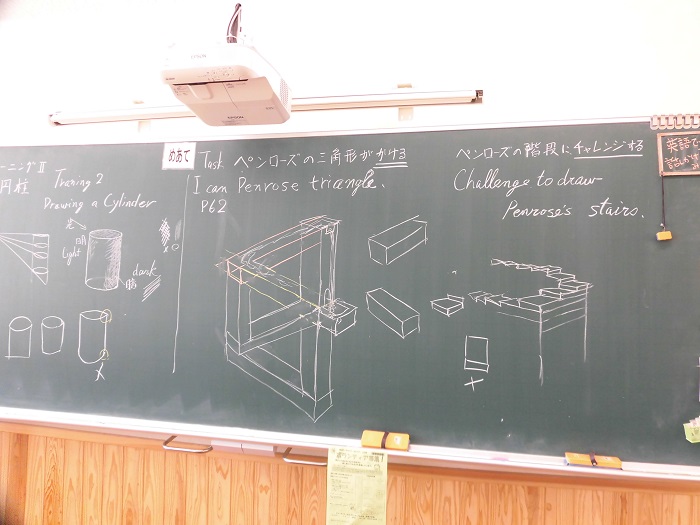 ーニングⅡ
円柱 Training 2
Drawing a Cylinder
光
明
light
dark
暗
めあて
Task ペンローズの三角形がかける
I can Penrose triangle.
P62
ペンローズの階段にチャレンジする
Challenge to draw
Penrose's stairs.
EPSON
英語で